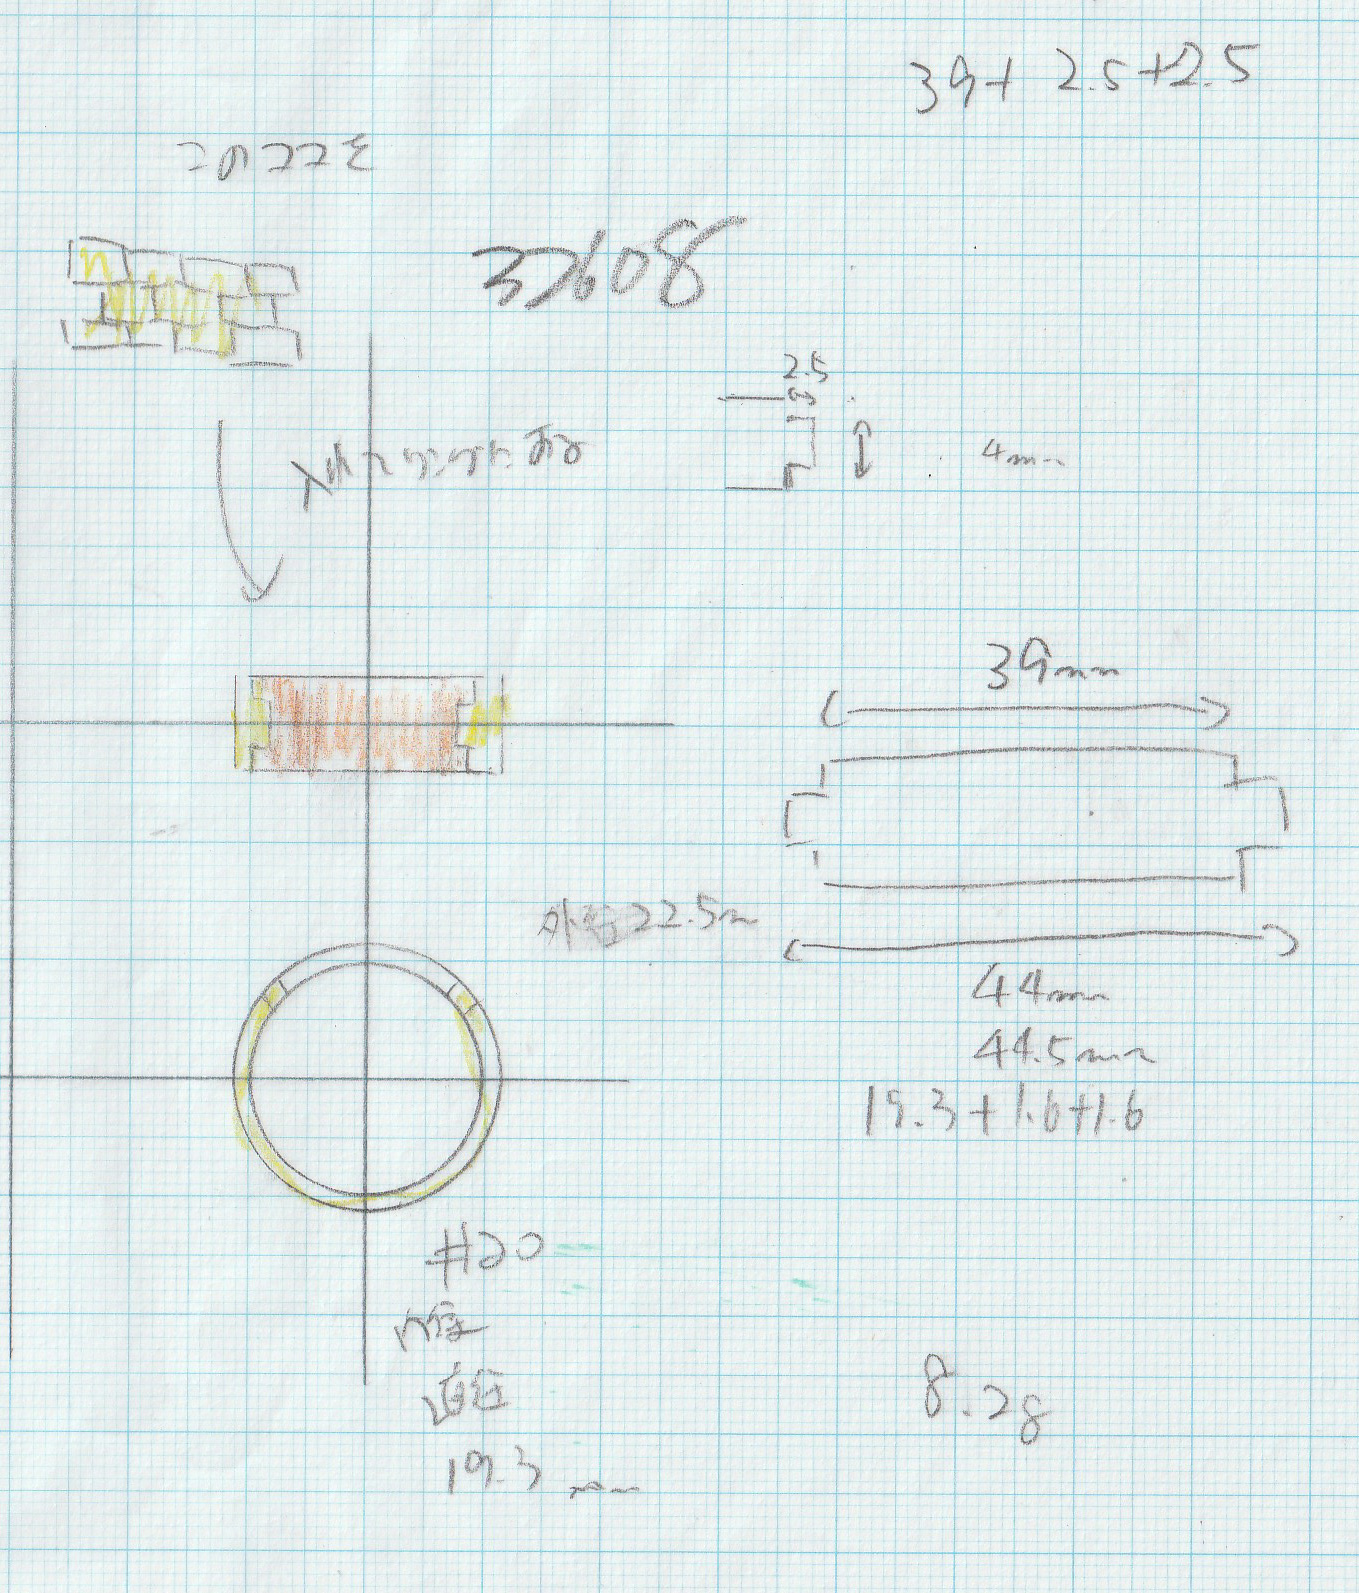 39+ 2.5+2.5
このココを
37608
2.5
4mm
39mm
外径22.5m
44mm
44.5mm
19.3+1.6+1.6
#20
内径
直径
19.3mm
8.2g